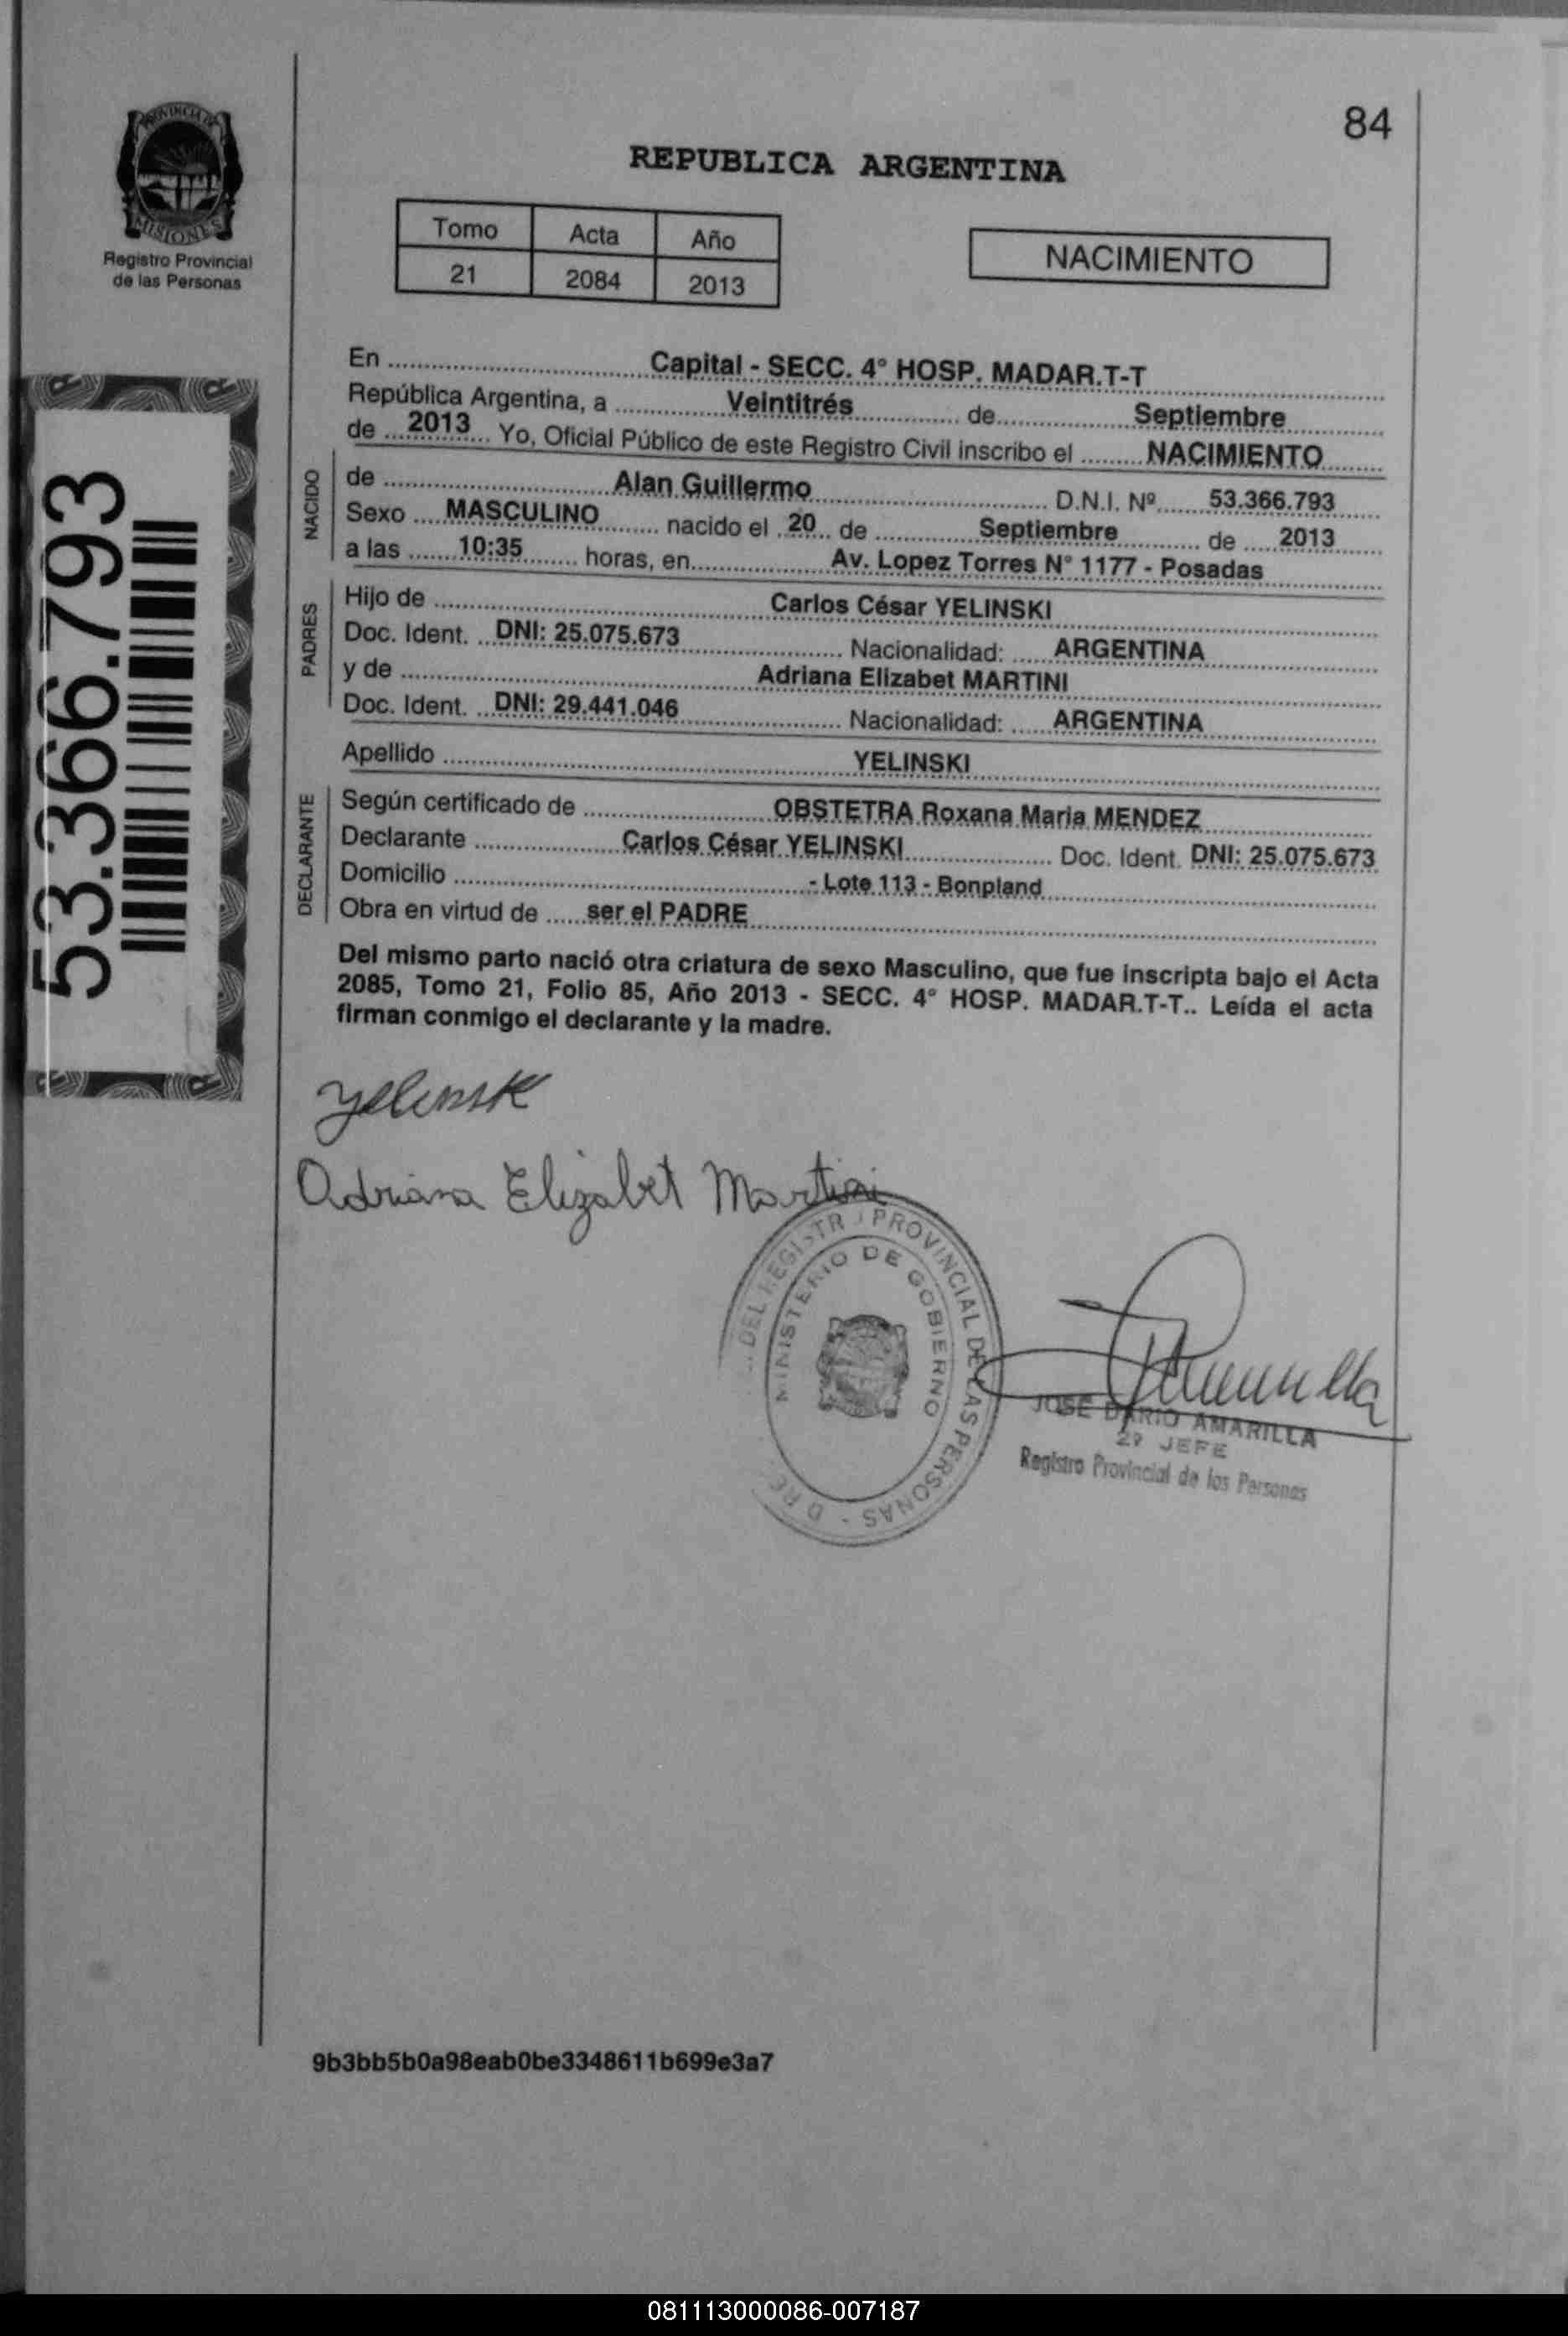 84
PROVINCIA DE
MISIONES
Registro Provincial
de las Personas
REPUBLICA ARGENTINA
Tomo Acta Año
21 2084 2013
NACIMIENTO
53.366.793
En Capital - SECC. 4° HOSP. MADAR.T-T
República Argentina, a Veintitrés de Septiembre
de 2013 Yo, Oficial Público de este Registro Civil inscribo el NACIMIENTO
NACIDO
de Alan Guillermo D.N.I. Nº 53.366.793
Sexo MASCULINO nacido el 20 de Septiembre de 2013
a las 10:35 horas, en Av. Lopez Torres N° 1177 - Posadas
PADRES
Hijo de Carlos César YELINSKI
Doc. Ident. DNI: 25.075.673 Nacionalidad: ARGENTINA
y de Adriana Elizabet MARTINI
Doc. Ident. DNI: 29.441.046 Nacionalidad: ARGENTINA
Apellido YELINSKI
DECLARANTE
Según certificado de OBSTETRA Roxana Maria MENDEZ
Declarante Carlos César YELINSKI Doc. Ident. DNI: 25.075.673
Domicilio - Lote 113 - Bonpland
Obra en virtud de ser el PADRE
Del mismo parto nació otra criatura de sexo Masculino, que fue inscripta bajo el Acta
2085, Tomo 21, Folio 85, Año 2013 - SECC. 4° HOSP. MADAR.T-T.. Leída el acta
firman conmigo el declarante y la madre.
Yelinsk
Adriana Elizabet Martini
DEL REGISTR PROVINCIAL DE LAS PERSONAS -
MINISTERIO DE GOBIERNO
JOSE DARIO AMARILLA
2º JEFE
Registro Provincial de las Personas
9b3bb5b0a98eab0be3348611b699e3a7
081113000086-007187